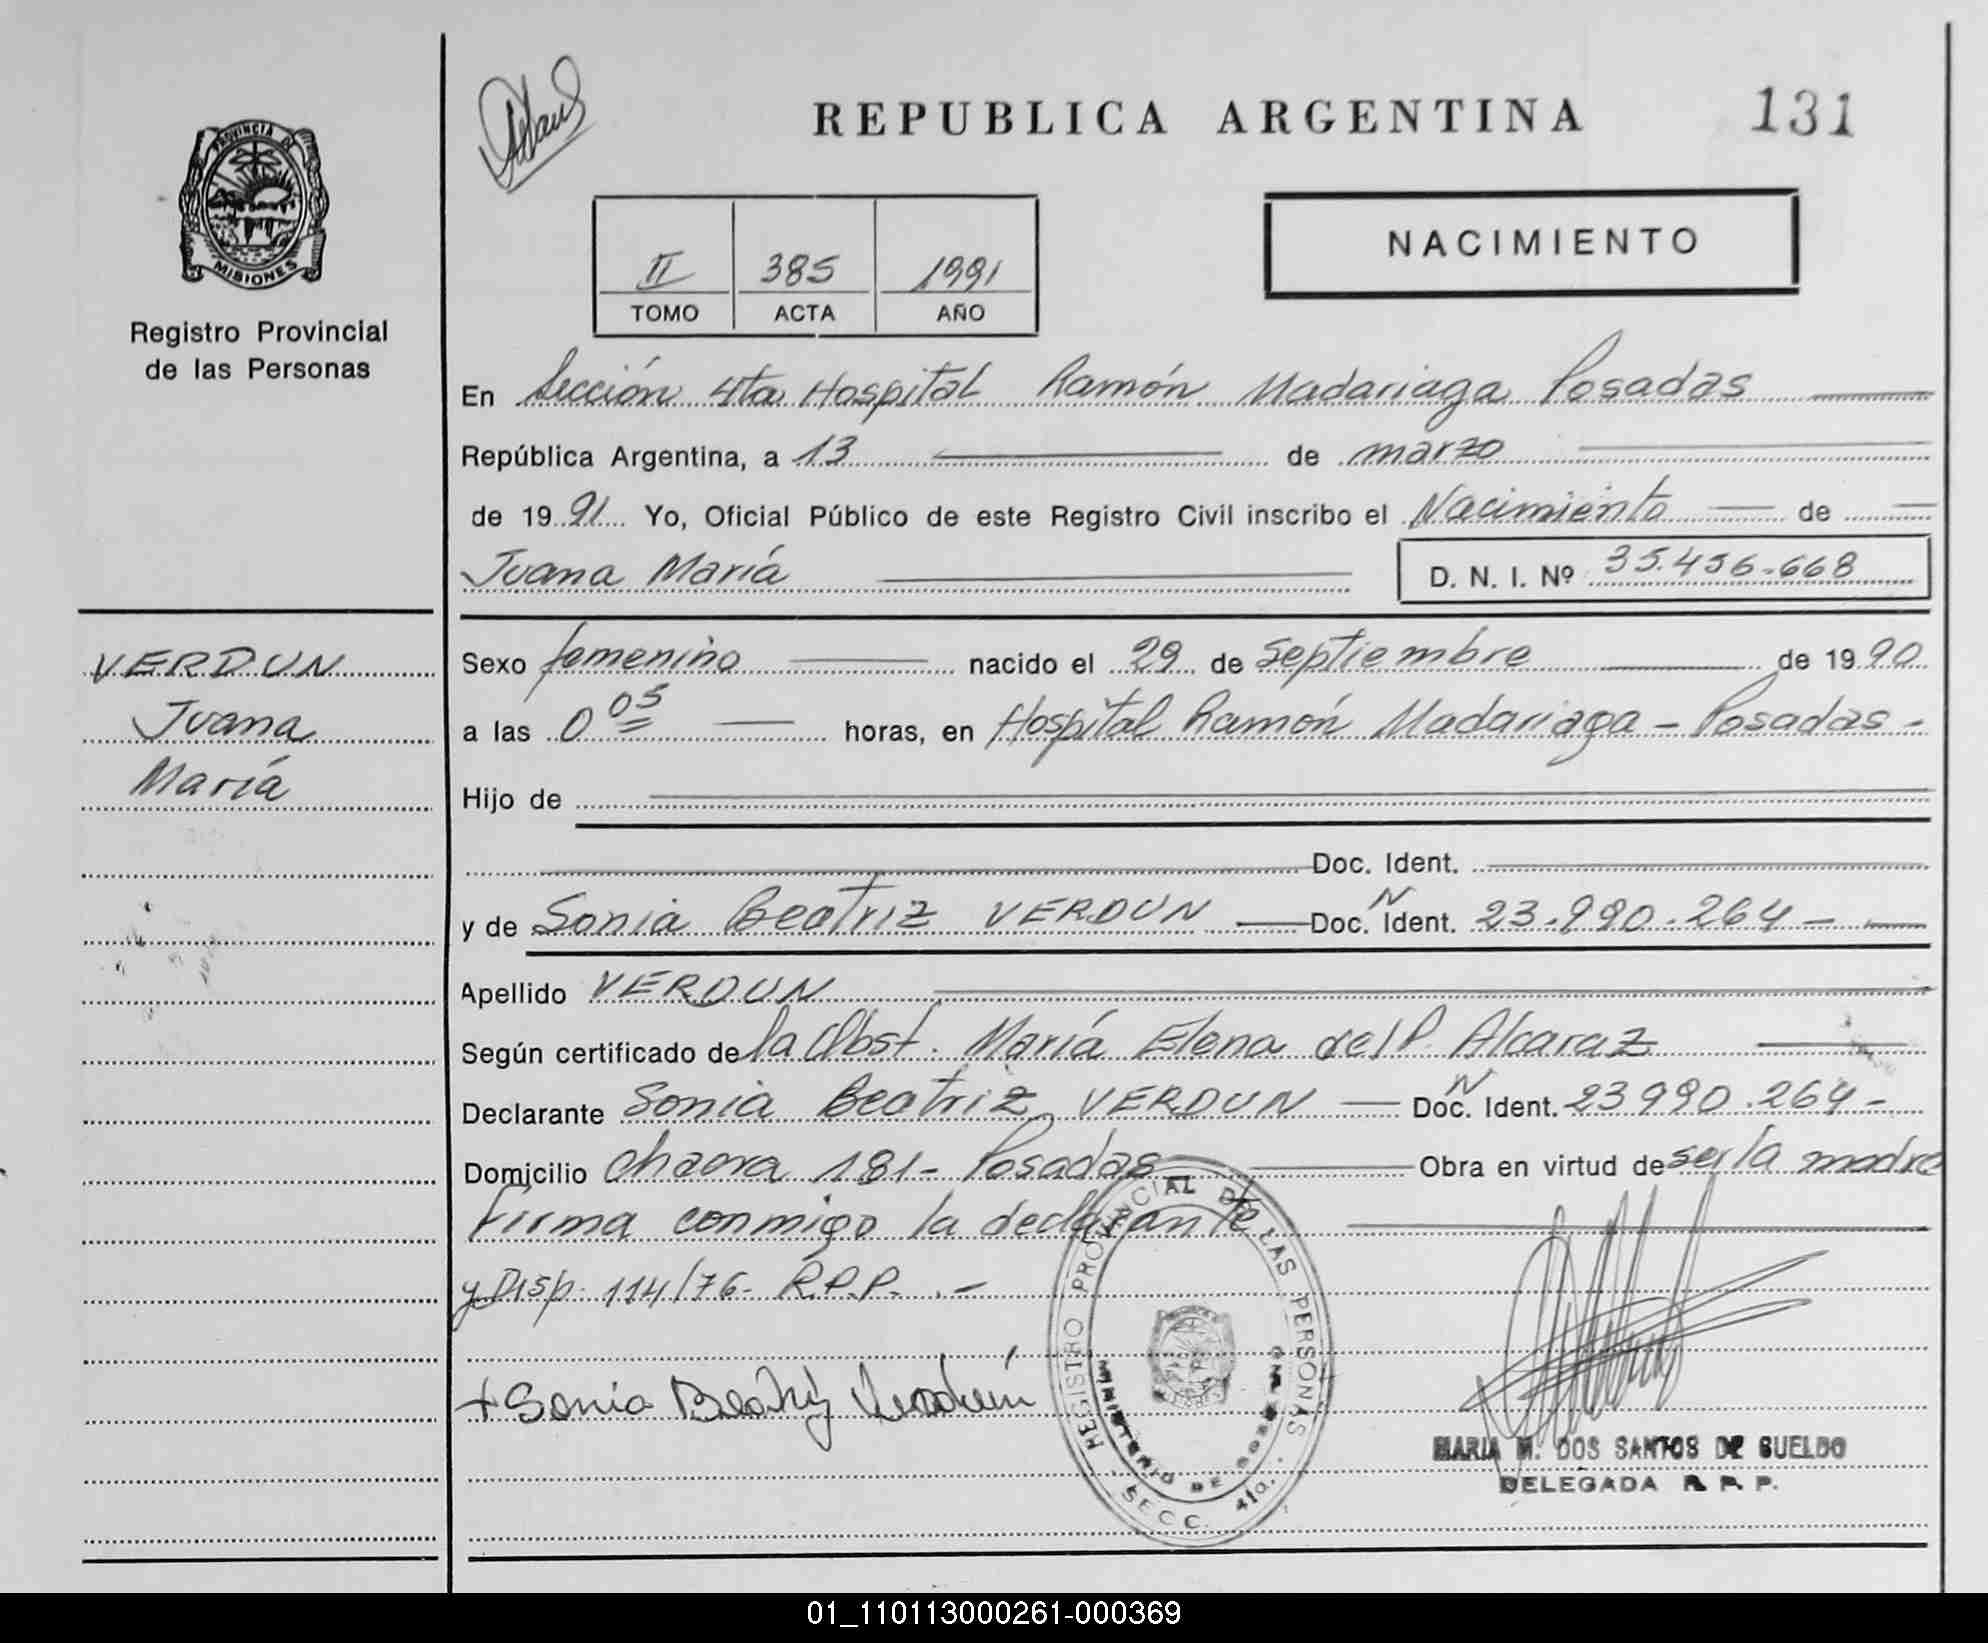 REPUBLICA ARGENTINA
131
PROVINCIA DE
MISIONES
Registro Provincial
de las Personas
II 385 1991
TOMO ACTA AÑO
NACIMIENTO
En Sección 4ta Hospital Ramón Madariaga Posadas
República Argentina, a 13 de marzo
de 1991 Yo, Oficial Público de este Registro Civil inscribo el Nacimiento de
Juana María
D. N. I. Nº 35.456.668
VERDUN
Juana
María
Sexo femenino nacido el 29 de septiembre de 1990
a las 0 05 horas, en Hospital Ramón Madariaga - Posadas -
Hijo de
Doc. Ident.
y de Sonia Beatriz VERDUN Doc. N Ident. 23.990.264 -
Apellido VERDUN
Según certificado de la Obst. María Elena del P. Alcaraz
Declarante Sonia Beatriz VERDUN Doc. N Ident. 23990.264 -
Domicilio chacra 181 - Posadas Obra en virtud de ser la madre
Firma conmigo la declarante
y Disp. 114/76. R.P.P. . -
+ Sonia Beatriz Verdún
REGISTRO PROVINCIAL DE LAS PERSONAS
MINISTERIO DE GOBIERNO
SECC. 4ta.
MARIA M. DOS SANTOS DE SUELDO
DELEGADA R. P. P.
01_110113000261-000369